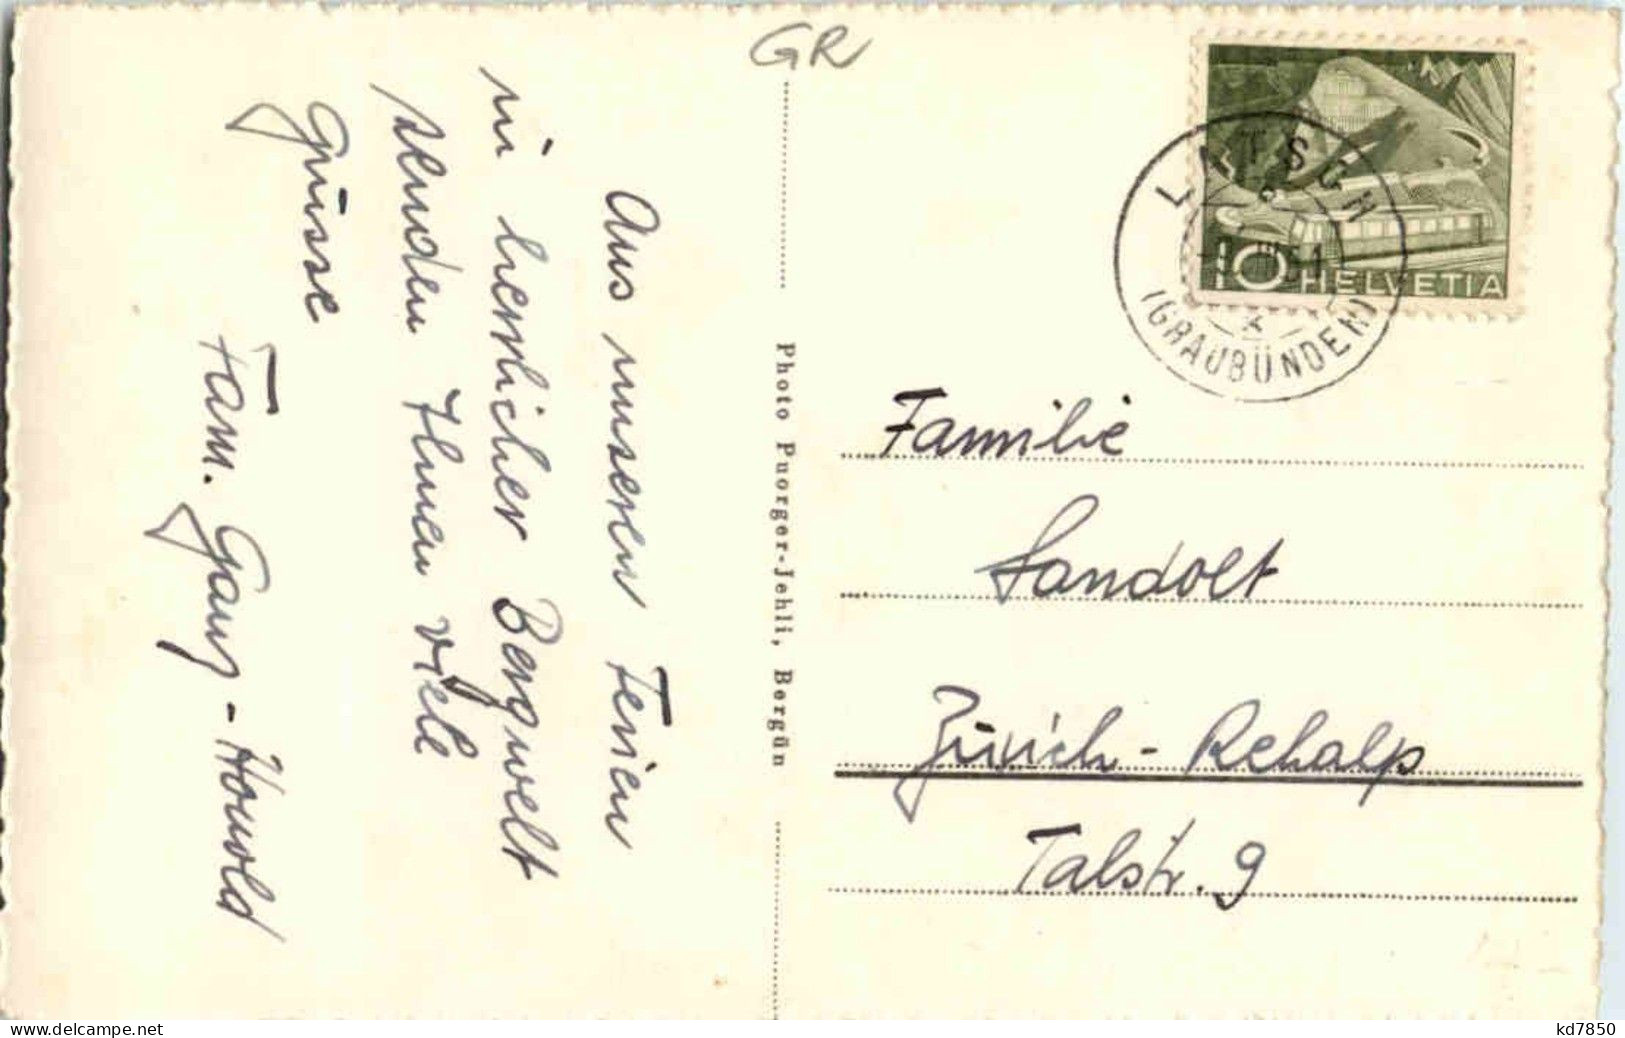 GR
Aus unseren Ferien
in herrlicher Bergwelt
senden Ihnen viele
Grüsse
Fam. Ganz - Howold
Photo Puorger-Jehli, Bergün
LATSCH
(GRAUBÜNDEN)
10 HELVETIA
Familie
Landolt
Zürich - Rehalp
Talstr. 9
kd7850